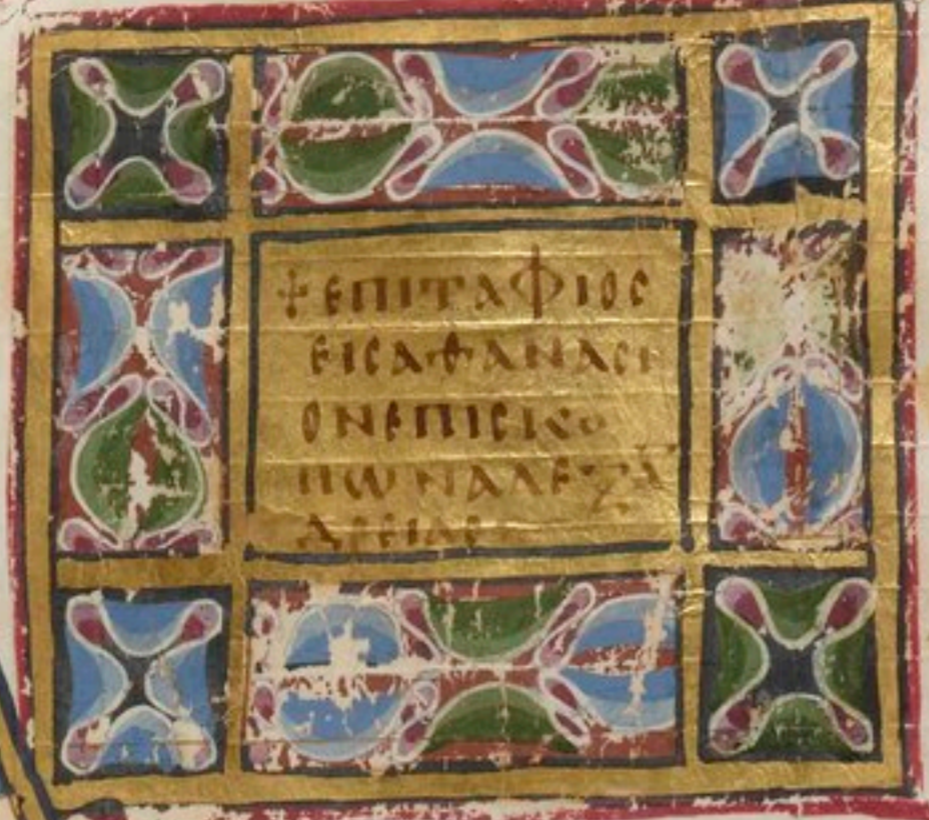 + ΕΠΙΤΑΦΙΟΣ
ΕΙΣ ΑΘΑΝΑΣΙ
ΟΝ ΕΠΙΣΚΟ
ΠΩΝ ΑΛΕΞΑΝ
ΔΡΕΙΑΣ